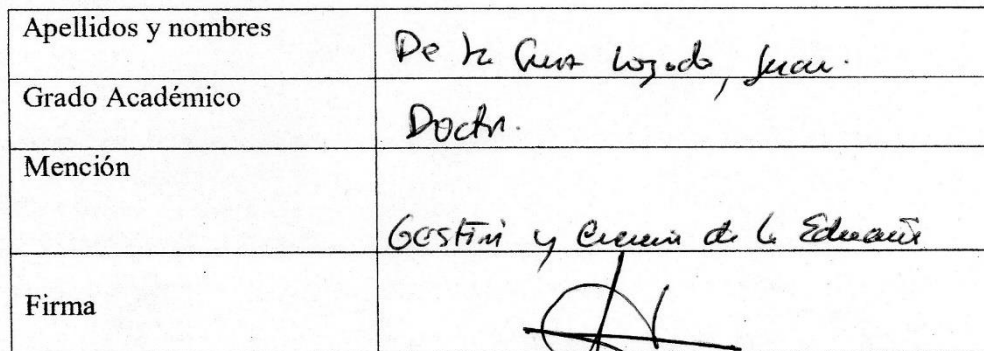 Apellidos y nombres
De la Cruz Lozada, Juan.
Grado Académico
Doctor.
Mención
Gestión y Ciencia de la Educación
Firma